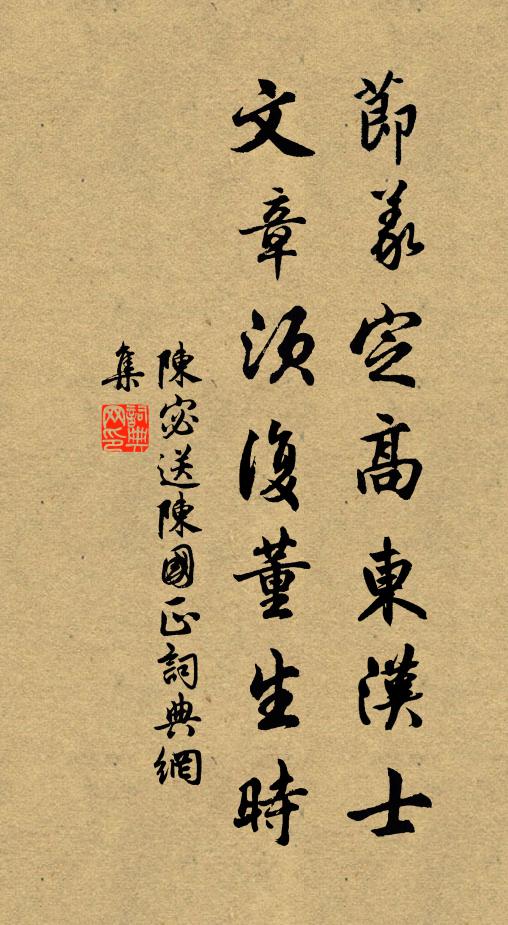 節義定高東漢士
文章須復董生時
陳宓送陳國正詞典網
集
詞典
网印